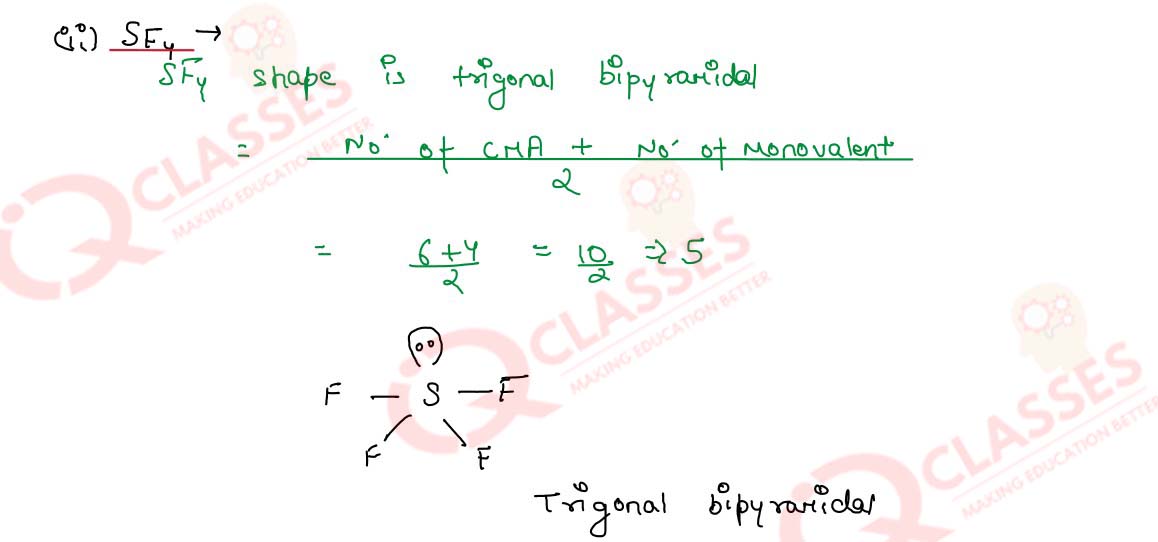 (ii) SF4 →
SF4 shape is trigonal bipyramidal
= No. of CMA + No. of Monovalent
2
= 6+4 = 10 ⇒ 5
2 2
F — S — F
F F
Trigonal bipyramidal
IQ CLASSES
MAKING EDUCATION BETTER
IQ CLASSES
MAKING EDUCATION BETTER
CLASSES
MAKING EDUCATION BETTER